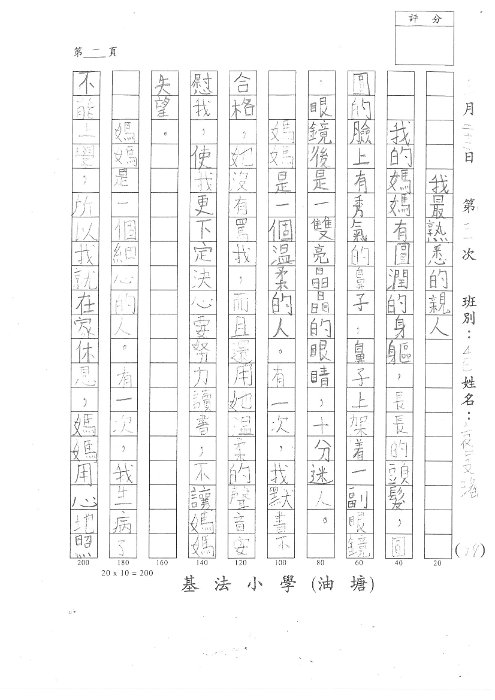 評分
第二頁
月 日 第二次 班別：4 姓名： (19)
我最熟悉的親人
我的媽媽有圓潤的身軀，長長的頭髮，圓
圓的臉上有秀氣的鼻子，鼻子上架着一副眼鏡
，眼鏡後是一雙亮晶晶的眼睛，十分迷人。
媽媽是一個溫柔的人。有一次，我默書不
合格，她沒有罵我，而且還用她溫柔的聲音安
慰我，使我更下定決心要努力讀書，不讓媽媽
失望。
媽媽是一個細心的人。有一次，我生病了
不能上學，所以我就在家休息，媽媽用心地照
20
40
60
80
100
120
140
160
180
200
20 x 10 = 200
基法小學(油塘)